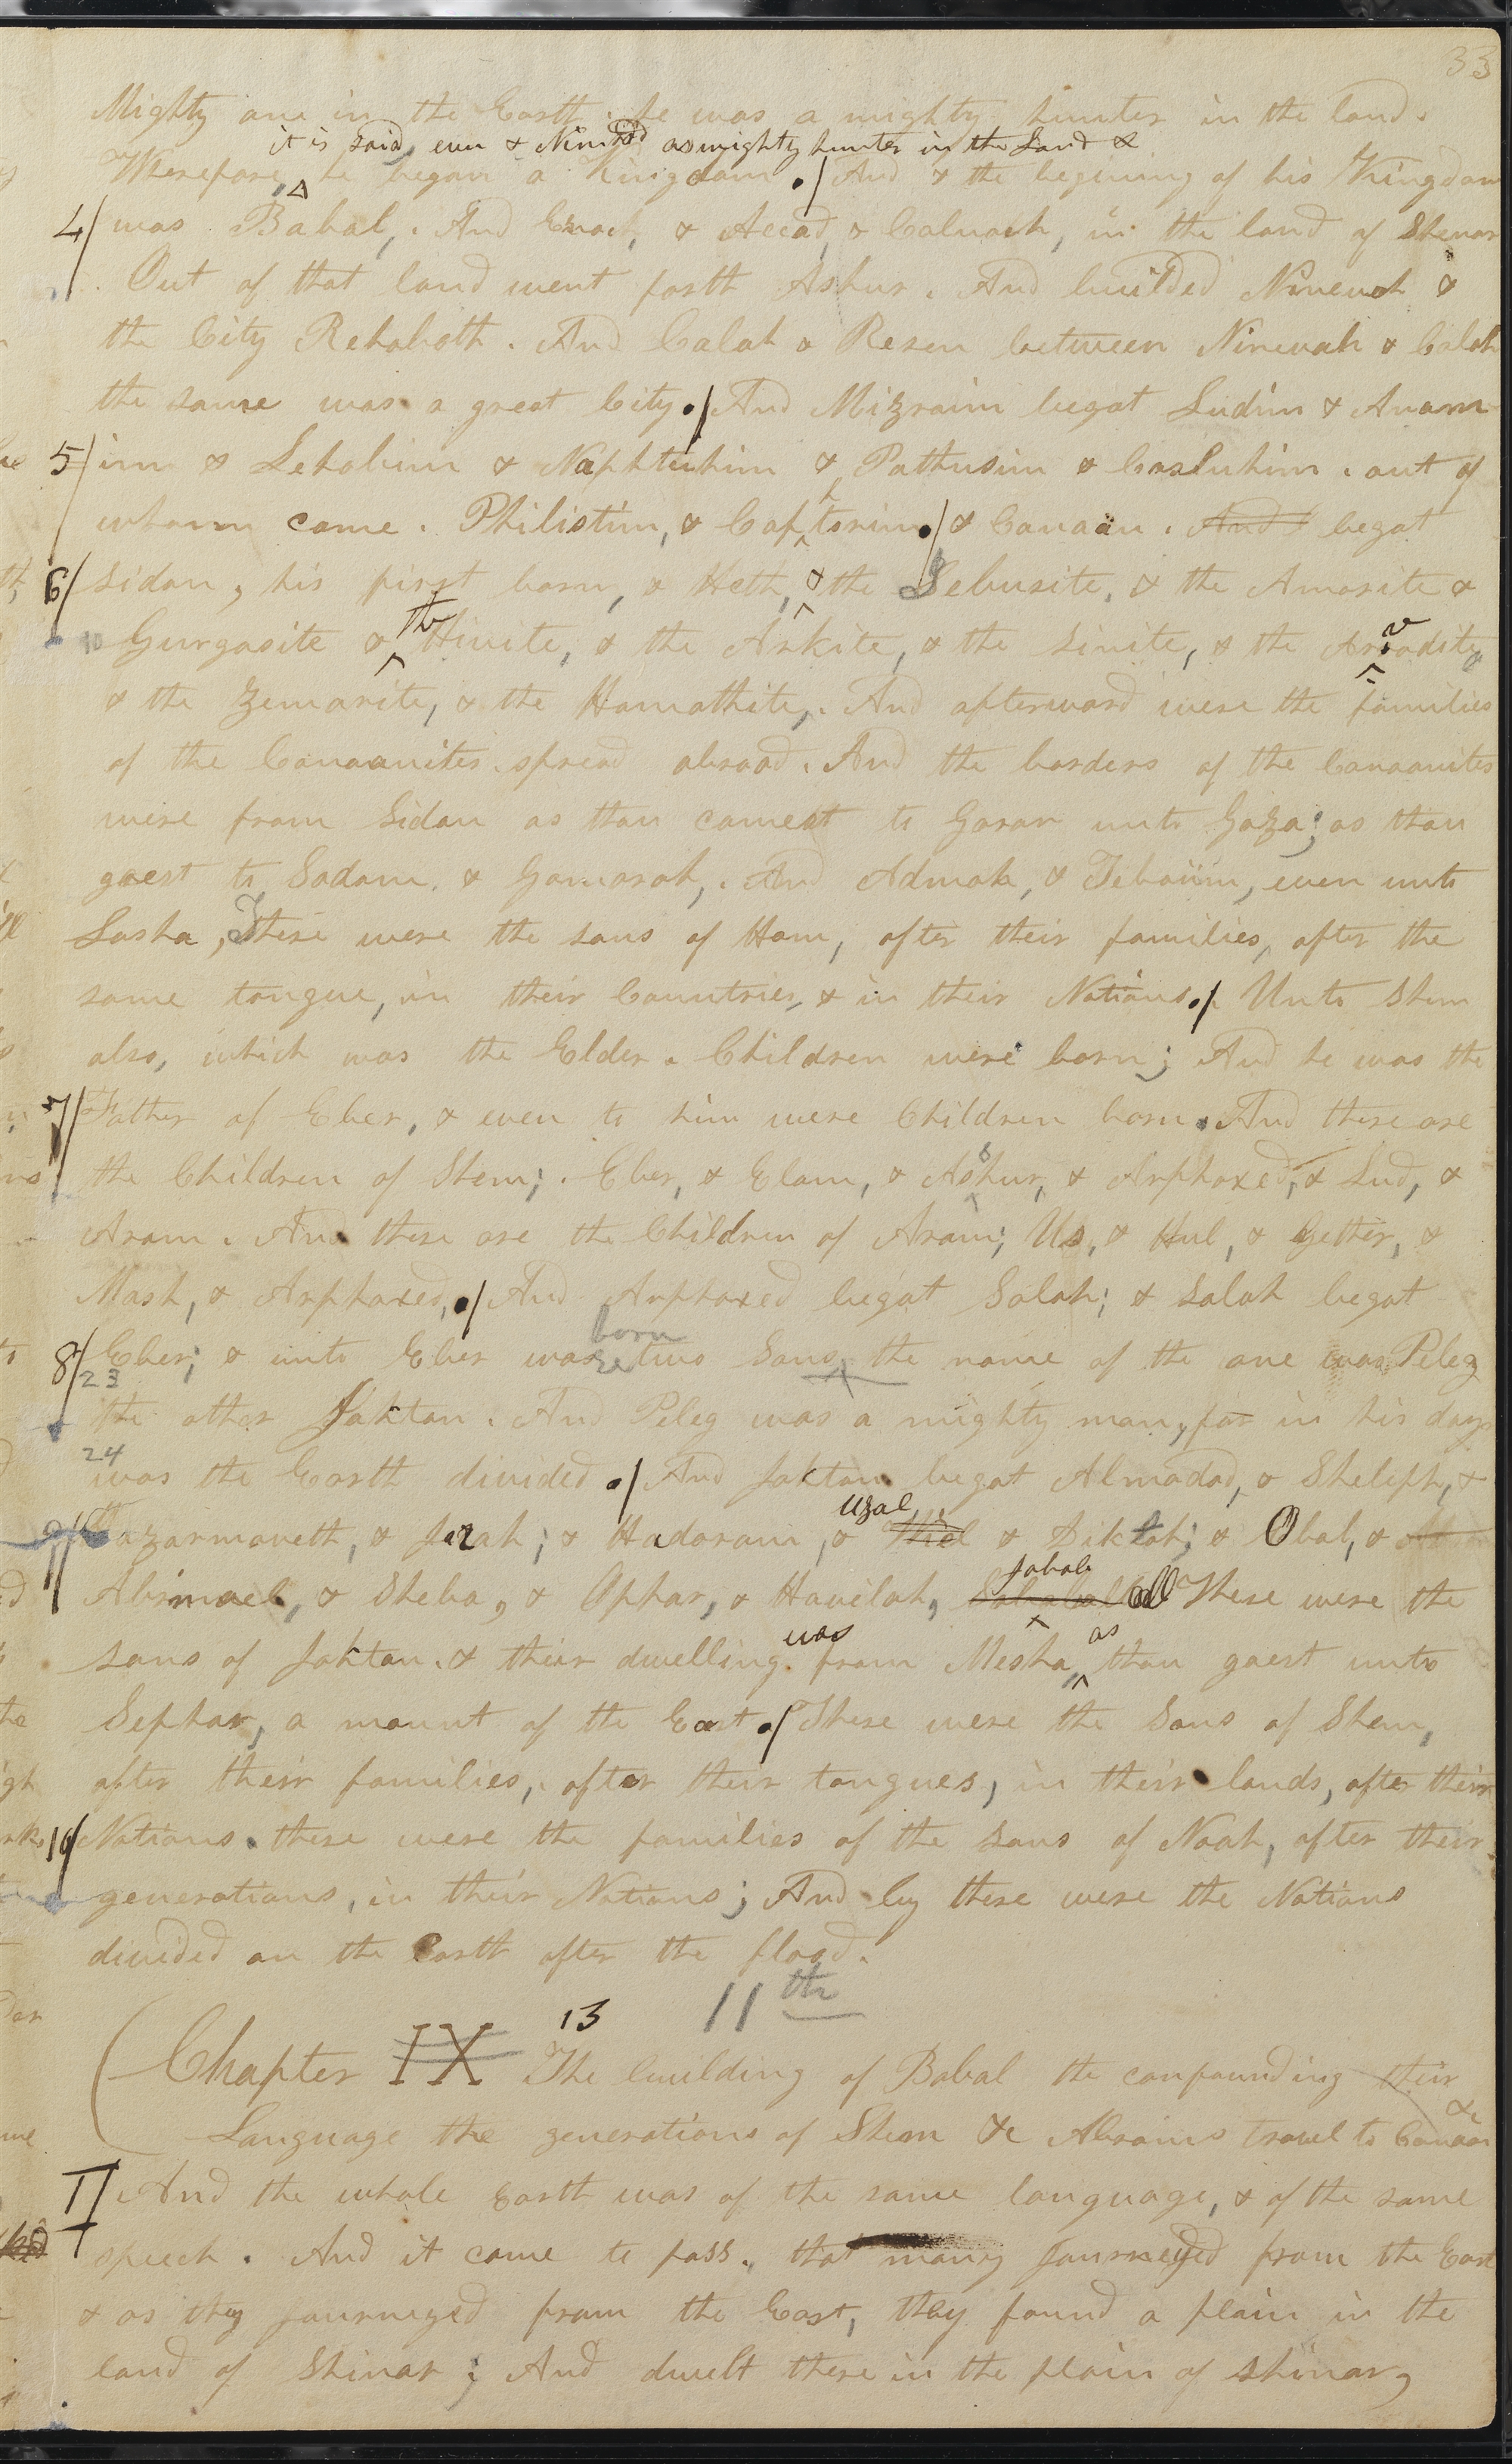 33
Mighty one in the Earth. he was a mighty hunter in the land.
it is said, even & Nimrod as mighty hunter in the Land &
Wherefore, he began a Kingdom. / And & the begining of his Kingdom
4/ was Babal,. And Erach, & Accad, & Calnach, in the land of Shenar
. Out of that land went forth Ashur. And builded Ninevah &
the City Rehoboth. And Calah & Resen between Ninevah & Calah
the same was a great City. / And Mizraim begat Ludim & Anam
5/ im & Lehabim & Naphtuhim & Pathrusim & Casluhim. out of
whom came. Philistim, & Caphtorim. / & Canaan. And begat
6/ Sidon, his first born, & Heth, & the Jebusite, & the Amorite &
10 Gurgasite & the Hivite, & the Arkite, & the Sinite, & the Arvadite
& the Zemarite, & the Hamathite,. And afterward were the families
of the Canaanites spread abroad. And the borders of the Canaanites
were from Sidon as thou comest to Gerar unto Gaza; as thou
goest to Sodom. & Gomorah,. And Admah, & Zeboiim, even unto
Lasha, These were the sons of Ham, after their families, after the
same tongue, in their Countries, & in their Nations. / Unto Shem
also, which was the Elder. Children were born; And he was the
7/ Father of Eber, & even to him were Children born. And these are
the Children of Shem; . Eber, & Elam, & Ashur, & Arphaxed, & Lud, &
Aram. And these are the Children of Aram; Us, & Hul, & Gether, &
Mash, & Arphaxed, / And Arphaxed begat Salah; & Salah begat
born
8/ Eber; & unto Eber were two Sons, the name of the one was Peleg
23
the other Joktan. And Peleg was a mighty man, for in his days
24
was the Earth divided. / And Joktan begat Almodad, & Sheleph, &
Uzal
9/ Hazarmaveth, & Jerah; & Hadoram, & & Diklah; & Obal, &
Jobab
Abimael, & Sheba, & Ophar, & Havilah, all These were the
was as
sons of Joktan. & their dwelling from Mesha, thou goest unto
Sephar, a mount of the East. / These were the Sons of Shem,
after their families, after their tongues, in their lands, after their
10/ Nations. these were the families of the sons of Noah, after their
generations, in their Nations; And by these were the Nations
divided on the Earth after the flood.
13 11th
Chapter IX The building of Babal the confounding their
Language the generations of Shem &c Abrams travel to Canaan &c
1/ And the whole Earth was of the same language, & of the same
speech. And it came to pass., that many Journeyed from the East
& as they journeyed from the East, they found a plain in the
land of Shinar; And dwelt there in the plain of Shinar,